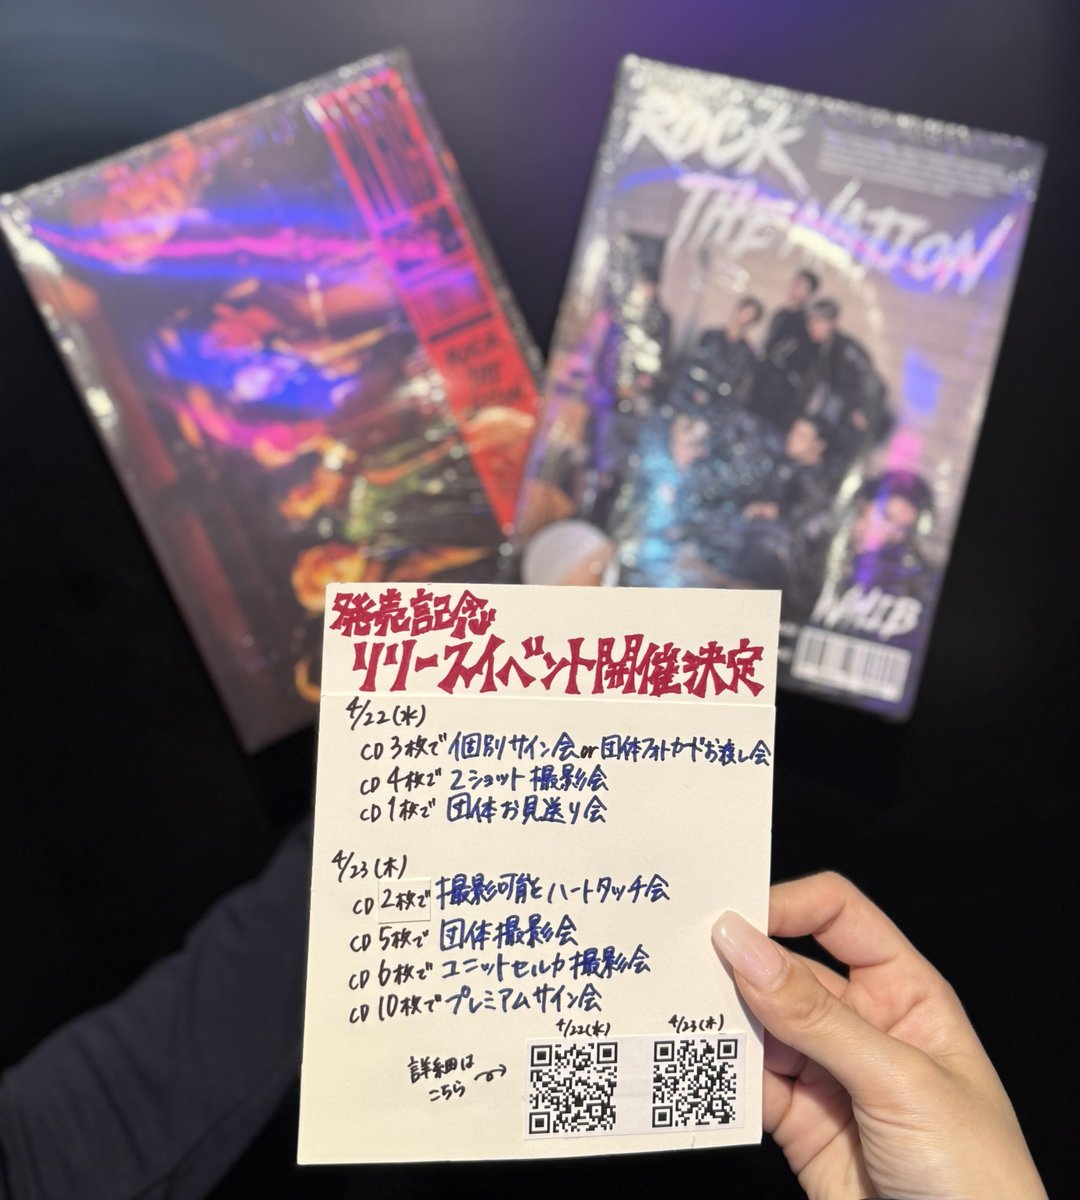 ROCK
THE NATION
ROCK
THE
WHIB
発売記念
リリースイベント開催決定
4/22(水)
CD 3枚で 個別サイン会or団体フォトカードお渡し会
CD 4枚で 2ショット撮影会
CD 1枚で 団体お見送り会
4/23(木)
CD 2枚で 撮影可能なハートタッチ会
CD 5枚で 団体撮影会
CD 6枚で ユニットセルカ撮影会
CD 10枚で プレミアムサイン会
4/22(水)
4/23(木)
詳細は
こちら